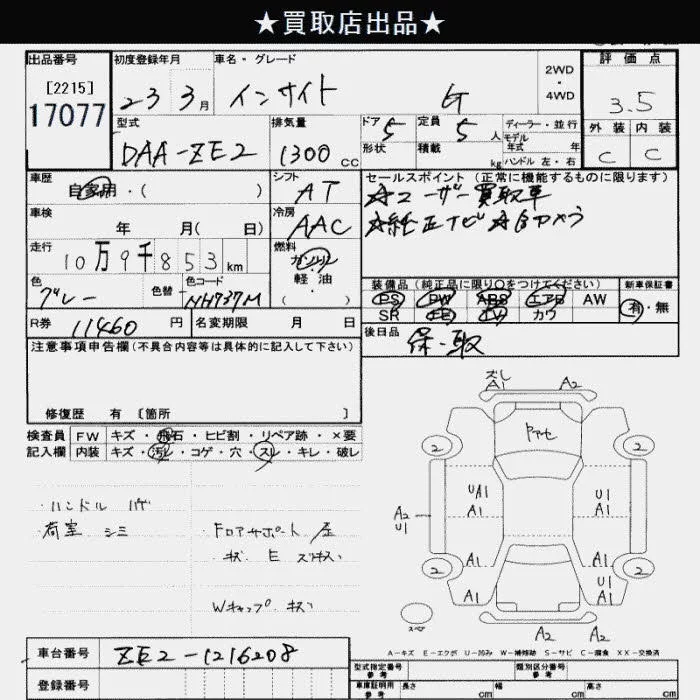 ★買取店出品★
出品番号 [2215] 17077
初度登録年月 23 3月
車名・グレード インサイト G
2WD・4WD
評価点 3.5
外装 C 内装 C
型式 DAA-ZE2
排気量 1300 cc
ドア 5 形状
定員 5人 積載 kg
ディーラー・並行
モデル年式 年
ハンドル 左・右
車歴 自家用・( )
シフト AT
セールスポイント (正常に機能するものに限ります)
☆ユーザー買取車
☆純正ナビ ☆Bカメラ
車検 年 月( 日)
冷房 AAC
走行 10万9千853km
燃料 ガソリン 軽油・( )
色 グレー 色替 色コード NH737M
装備品 (純正品に限り○をつけてください)
PS PW ABS エアB AW
SR TV カワ
新車保証書 有・無
R券 11460円 名変期限 月 日
後日品 保・取
注意事項申告欄(不具合内容等は具体的に記入して下さい)
修復歴 有 〔箇所 〕
検査員記入欄
FW キズ・飛石・ヒビ割・リペア跡・×要
内装 キズ・汚レ・コゲ・穴・スレ・キレ・破レ
・ハンドル ハゲ
・荷室 シミ
・Fロアサポート
キズ E
Wキャップ キズ
ズレ
A1 A2
2 2
UA1 U1
A1 A1
A2 U1
A1 A1
2 2
A1 U1 A1
A2 A2
スペア
A-キズ E-エクボ U-凹み W-補修跡 S-サビ C-腐食 XX-交換済
車台番号 ZE2-1216208
登録番号
型式指定番号 参考 類別区分番号 参考
車庫証明用 参考 長さ cm 幅 cm 高さ cm